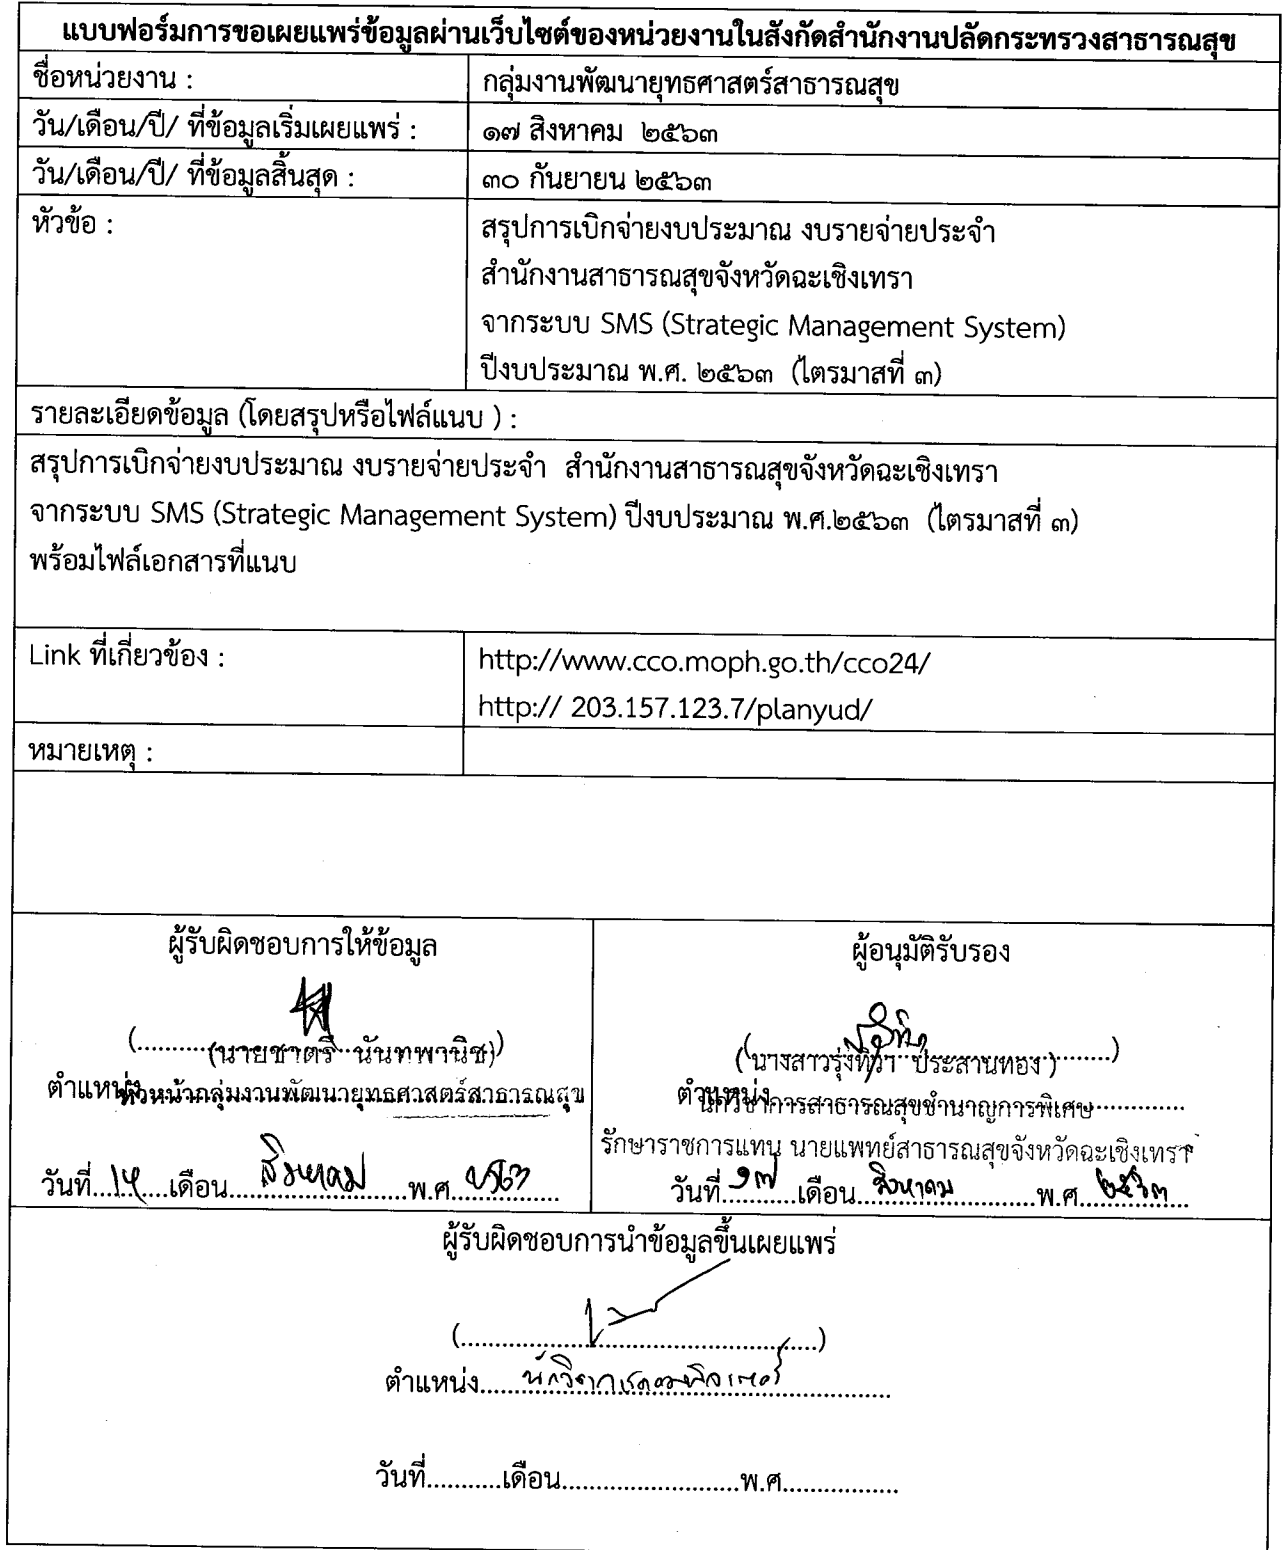 แบบฟอร์มการขอเผยแพร่ข้อมูลผ่านเว็บไซต์ของหน่วยงานในสังกัดสำนักงานปลัดกระทรวงสาธารณสุข
ชื่อหน่วยงาน : กลุ่มงานพัฒนายุทธศาสตร์สาธารณสุข
วัน/เดือน/ปี/ ที่ข้อมูลเริ่มเผยแพร่ : ๑๗ สิงหาคม ๒๕๖๓
วัน/เดือน/ปี/ ที่ข้อมูลสิ้นสุด : ๓๐ กันยายน ๒๕๖๓
หัวข้อ : สรุปการเบิกจ่ายงบประมาณ งบรายจ่ายประจำ
สำนักงานสาธารณสุขจังหวัดฉะเชิงเทรา
จากระบบ SMS (Strategic Management System)
ปีงบประมาณ พ.ศ. ๒๕๖๓ (ไตรมาสที่ ๓)
รายละเอียดข้อมูล (โดยสรุปหรือไฟล์แนบ ) :
สรุปการเบิกจ่ายงบประมาณ งบรายจ่ายประจำ สำนักงานสาธารณสุขจังหวัดฉะเชิงเทรา
จากระบบ SMS (Strategic Management System) ปีงบประมาณ พ.ศ.๒๕๖๓ (ไตรมาสที่ ๓)
พร้อมไฟล์เอกสารที่แนบ
Link ที่เกี่ยวข้อง : http://www.cco.moph.go.th/cco24/
http:// 203.157.123.7/planyud/
หมายเหตุ :
ผู้รับผิดชอบการให้ข้อมูล
(นายชาตรี นันทพานิช)
ตำแหน่ง หัวหน้ากลุ่มงานพัฒนายุทธศาสตร์สาธารณสุข
วันที่....14....เดือน....สิงหาคม....พ.ศ....2563
ผู้อนุมัติรับรอง
(นางสาวรุ่งทิวา ประสานทอง)
ตำแหน่ง นักวิชาการสาธารณสุขชำนาญการพิเศษ
รักษาราชการแทน นายแพทย์สาธารณสุขจังหวัดฉะเชิงเทรา
วันที่....๑๗....เดือน....สิงหาคม....พ.ศ....๒๕๖๓
ผู้รับผิดชอบการนำข้อมูลขึ้นเผยแพร่
(................................................)
ตำแหน่ง....นักวิชาการคอมพิวเตอร์
วันที่...........เดือน..........................พ.ศ.................